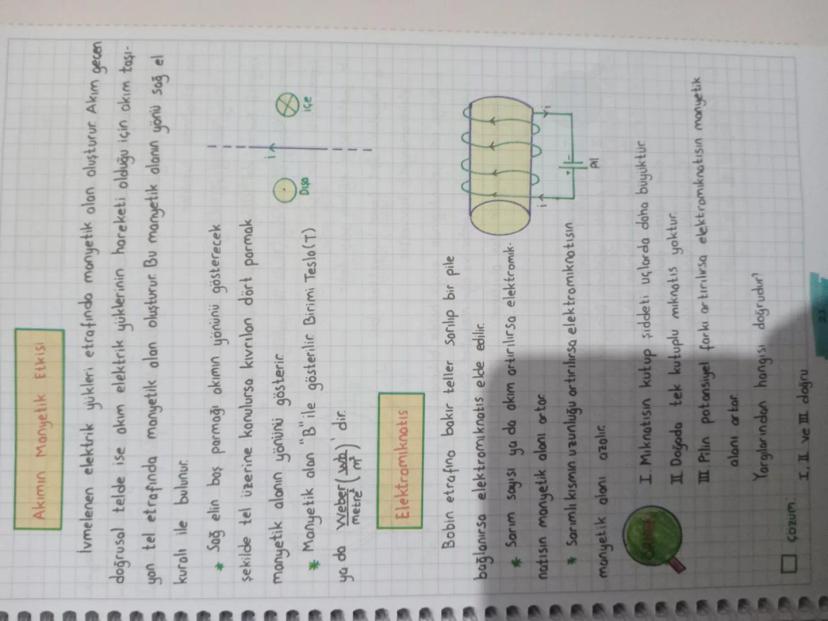 Akımın Manyetik Etkisi
İvmelenen elektrik yükleri etrafında manyetik alan oluşturur. Akım geçen
doğrusal telde ise akım elektrik yüklerinin hareketi olduğu için akım taşı-
yan tel etrafında manyetik alan oluşturur. Bu manyetik alanın yönü sağ el
kuralı ile bulunur.
* Sağ elin baş parmağı akımın yönünü gösterecek
şekilde tel üzerine konulursa kıvrılan dört parmak
manyetik alanın yönünü gösterir.
* Manyetik alan "B" ile gösterilir. Birimi Tesla (T)
ya da Weber/metre² (wb/m²)' dir.
i
Dışa
içe
Elektromıknatıs
Bobin etrafına bakır teller sarılıp bir pile
bağlanırsa elektromıknatıs elde edilir.
* Sarım sayısı ya da akım artırılırsa elektromık-
natısın manyetik alanı artar.
* Sarımlı kısmın uzunluğu artırılırsa elektromıknatısın
manyetik alanı azalır.
i
i
+ -
Pil
I Mıknatısın kutup şiddeti uçlarda daha büyüktür.
II Doğada tek kutuplu mıknatıs yoktur.
III Pilin potansiyel farkı artırılırsa elektromıknatısın manyetik
alanı artar.
Yargılarından hangisi doğrudur?
Çözüm:
I, II ve III doğru